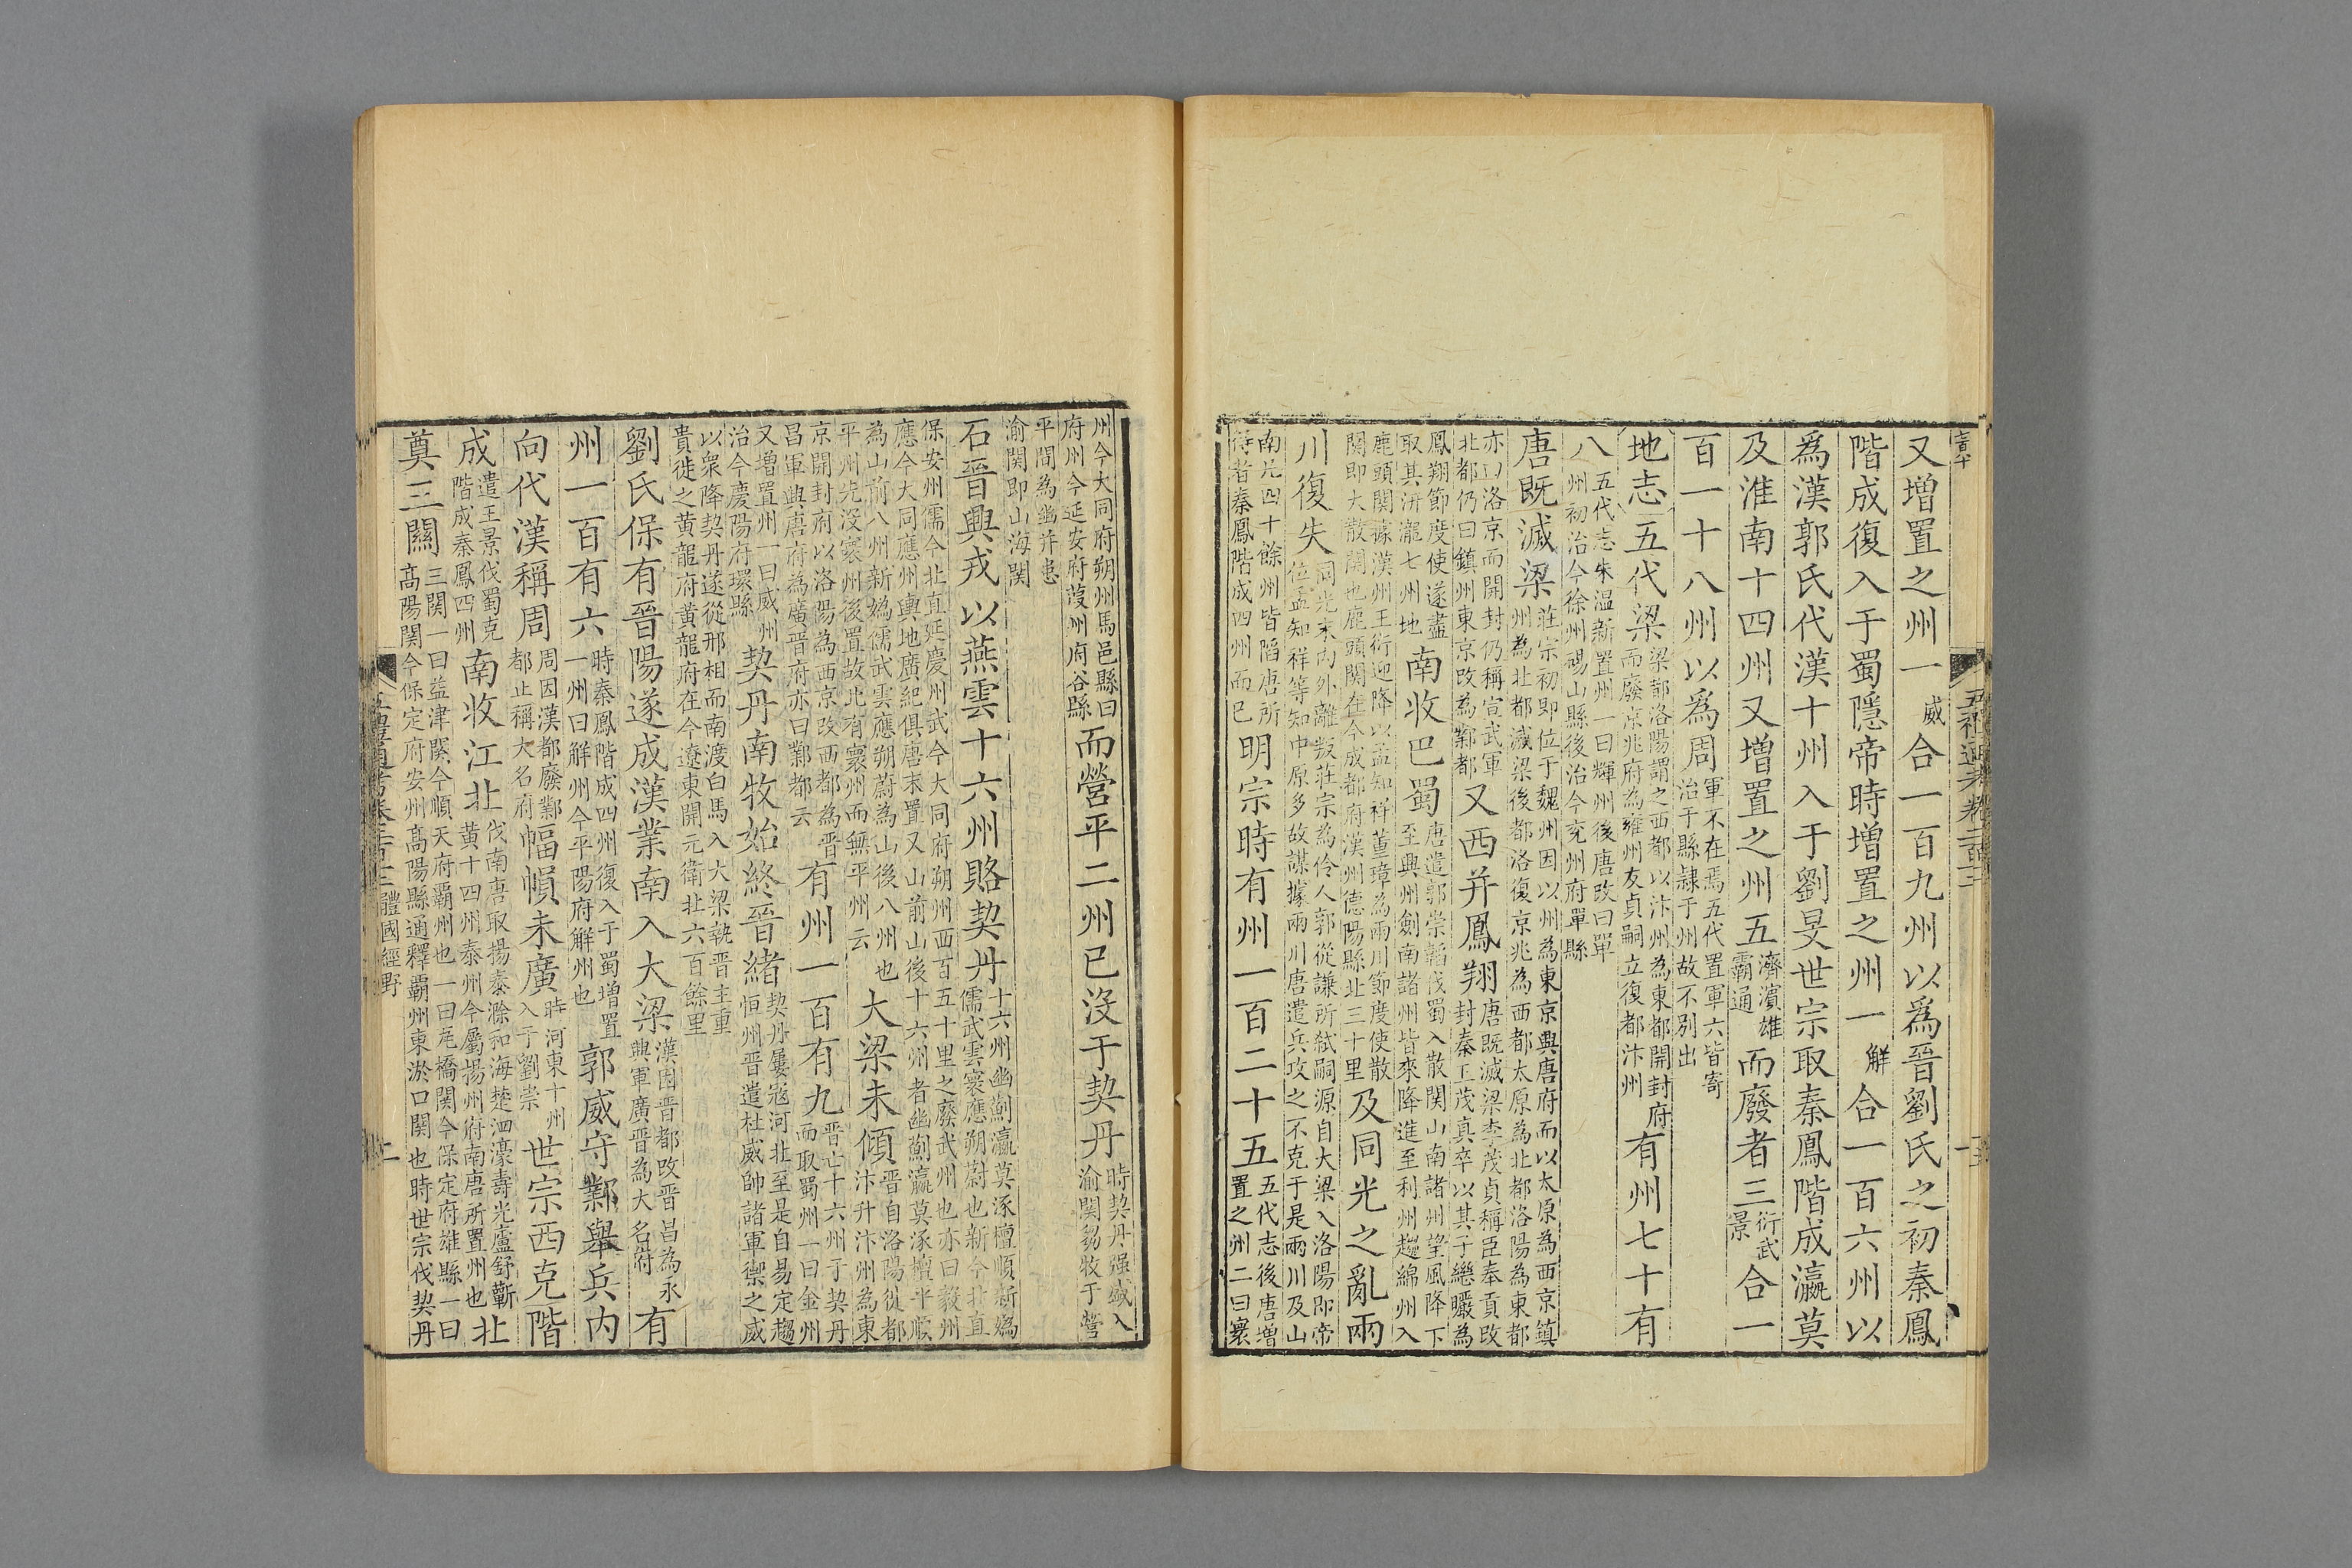 又增置之州一威合一百九州以爲晉劉氏之初秦鳳
階成復入于蜀隱帝時增置之州一解合一百六州以
爲漢郭氏代漢十州入于劉旻世宗取秦鳳階成瀛莫
及淮南十四州又增置之州五濟濵雄霸通而廢者三衍武景合一
百一十八州以爲周軍不在焉五代置軍六皆寄治于縣隷于州故不别出
地志五代梁梁都洛陽謂之西都以汴州為東都開封府而廢京兆府為雍州友貞嗣立復都汴州有州七十有
八五代志朱温新置州一曰輝州後唐改曰單州初治今徐州碭山縣後治今兖州府單縣
唐既滅梁莊宗初即位于魏州因以州為東京興唐府而以太原為西京鎮州為北都滅梁後都洛復京兆為西都太原為北都洛陽為東都
亦曰洛京而開封仍稱宣武軍北都仍曰鎮州東京改為鄴都又西并鳳翔唐既滅梁李茂貞稱臣奉貢改封秦王茂真卒以其子繼曮為
鳳翔節度使遂盡取其汧隴七州地南收巴蜀唐遣郭崇韜伐蜀入散關山南諸州望風降下至興州劍南諸州皆來降進至利州趨綿州入
鹿頭関據漢州王衍迎降以孟知祥董璋為兩川節度使散関即大散関也鹿頭関在今成都府漢州德陽縣北三十里及同光之亂兩
川復失同光末内外離叛莊宗為伶人郭從謙所弑嗣源自大梁入洛陽即帝位孟知祥等知中原多故謀據兩川唐遣兵攻之不克于是兩川及山
南凡四十餘州皆䧟唐所得者秦鳳階成四州而已明宗時有州一百二十五五代志後唐增置之州二曰寰
州今大同府朔州馬邑縣曰府州今延安府葭州府谷縣而營平二州已沒于契丹時契丹强盛入渝関芻牧于營
平間為幽并患渝関即山海関
石晉興戎以燕雲十六州賂契丹十六州幽薊瀛莫涿檀順新媯儒武雲寰應朔蔚也新今北直
保安州儒今北直延慶州武今大同府朔州西百五十里之廢武州也亦曰毅州應今大同應州輿地廣紀俱唐末置又山前山後十六州者幽薊瀛莫涿檀平順
為山前八州新媯儒武雲應朔蔚為山後八州也平州先没寰州後置故北有寰州而無平州云大梁未傾晉自洛陽徙都汴升汴州為東
京開封府以洛陽為西京改西都為晉昌軍興唐府為廣晉府亦曰鄴都云有州一百有九晉亡十六州于契丹而取蜀州一曰金州
又增置州一曰威州治今慶陽府環縣契丹南牧始終晉緒契丹屢寇河北至是自易定趨恒州晉遣杜威帥諸軍禦之威
以衆降契丹遂從邢相而南渡白馬入大梁執晉主重貴徙之黄龍府黄龍府在今遼東開元衛北六百餘里
劉氏保有晉陽遂成漢業南入大梁漢因晉都改晉昌為永興軍廣晉為大名府有
州一百有六時秦鳳階成四州復入于蜀增置一州曰解州今平陽府解州也郭威守鄴舉兵内
向代漢稱周周因漢都廢鄴都止稱大名府幅幀未廣時河東十州入于劉崇世宗西克階
成遣王景伐蜀克階成秦鳳四州南收江北伐南唐取揚泰滁和海楚泗濠壽光廬舒蘄黄十四州泰州今屬揚州府南唐所置州也北
奠三關三関一曰益津関今順天府霸州也一曰瓦橋関今保定府雄縣一曰髙陽関今保定府安州髙陽縣通釋霸州東淤口関也時世宗伐契丹